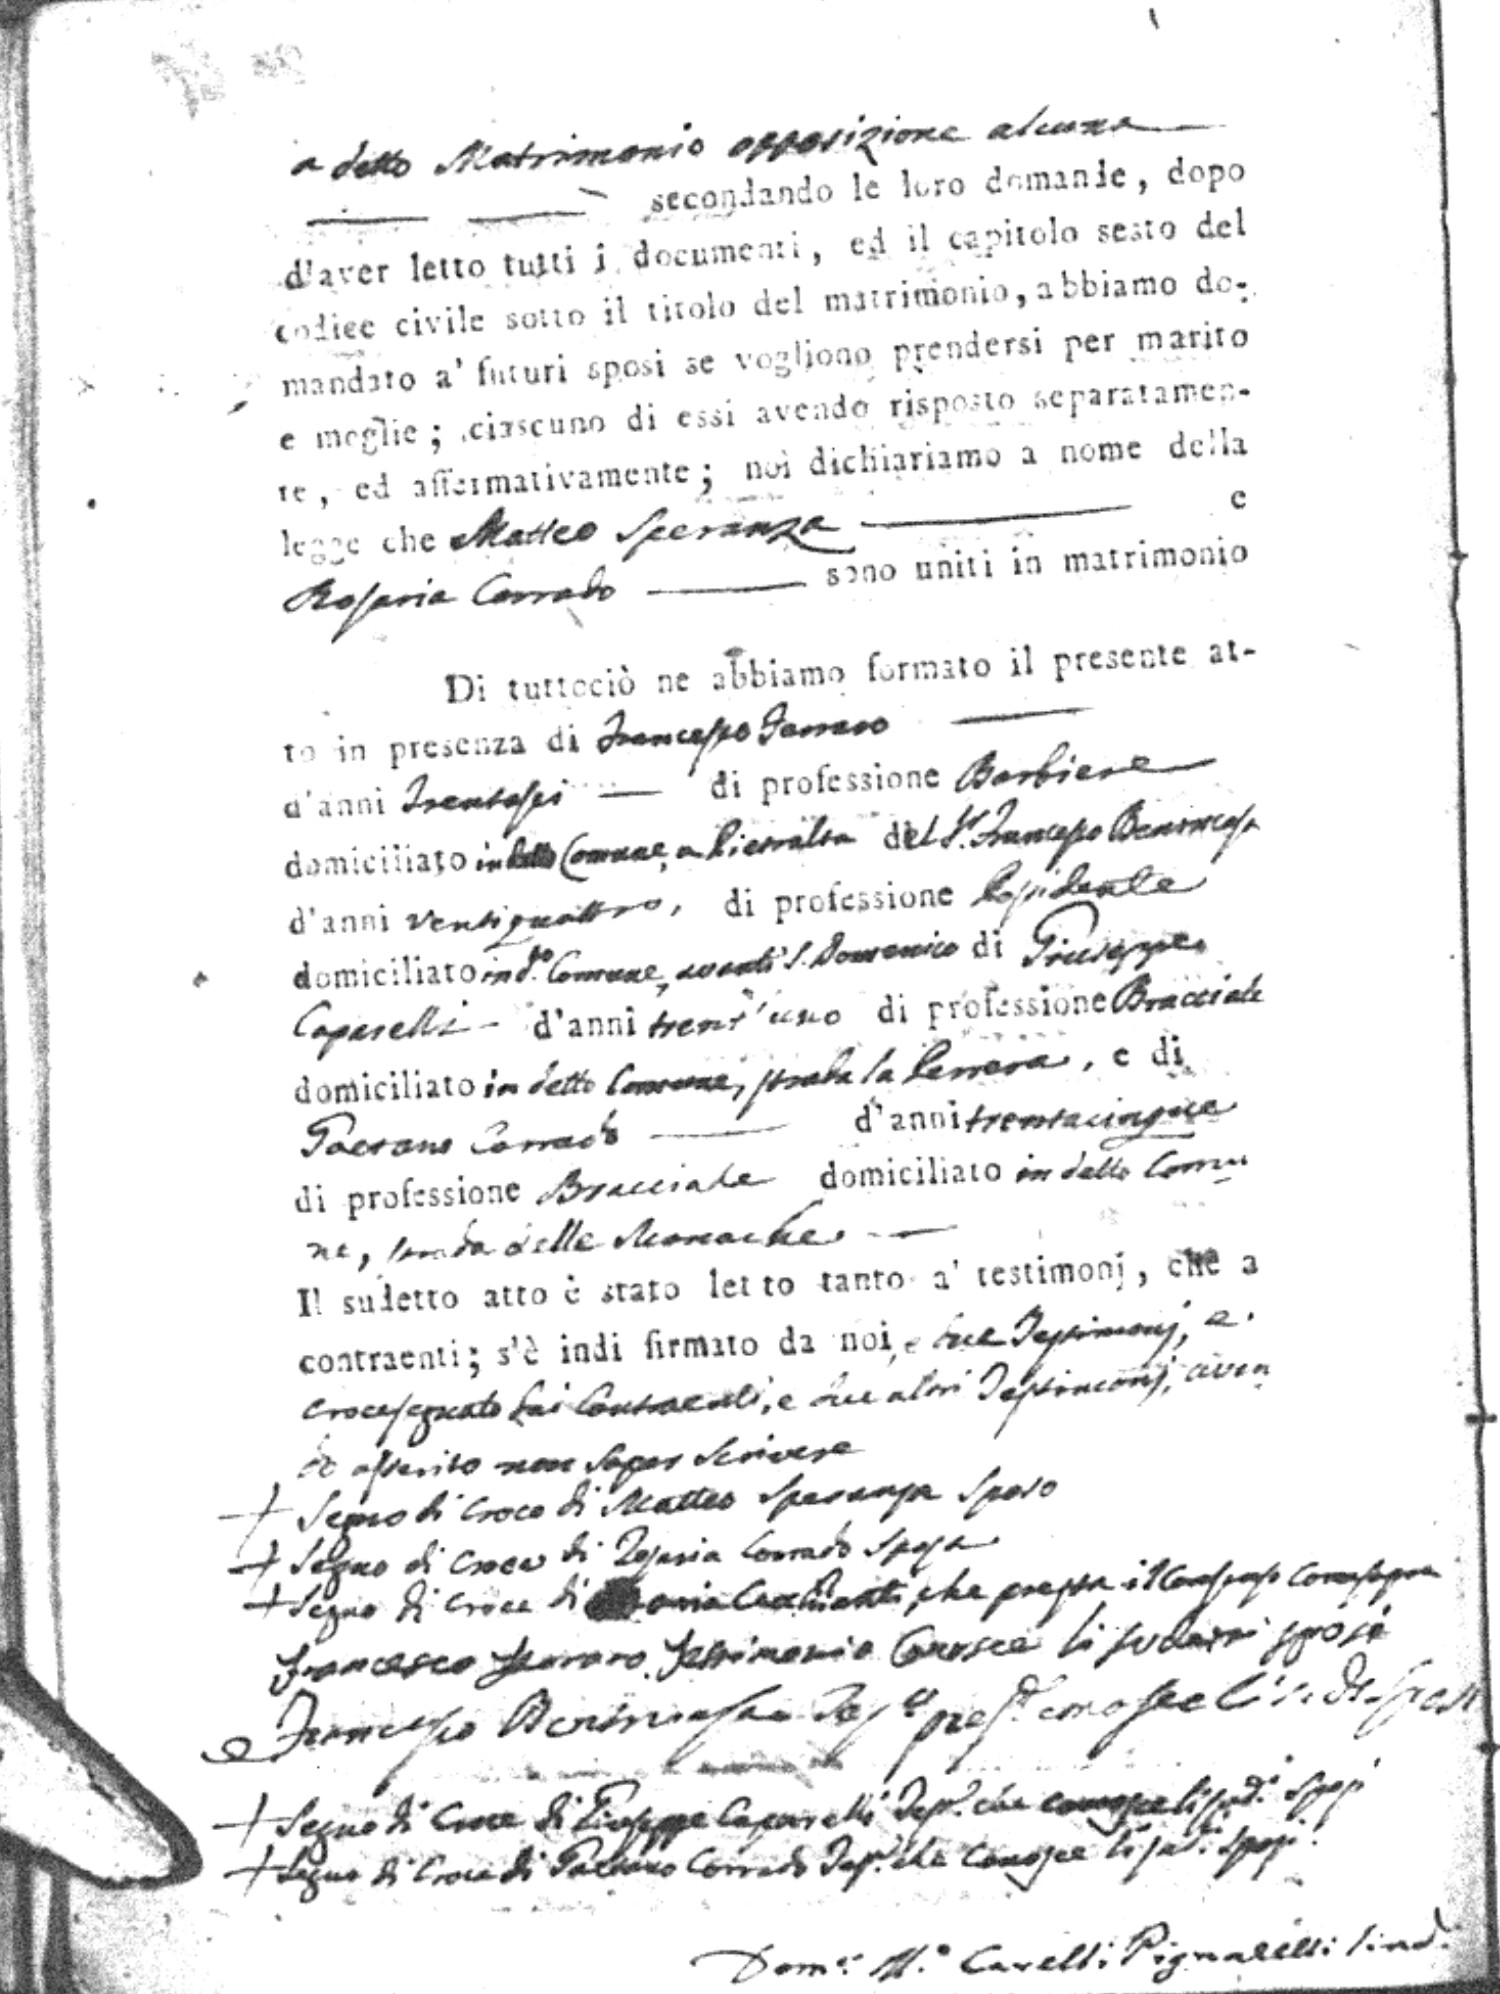 a detto Matrimonio opposizione alcuna
secondando le loro domande, dopo
d'aver letto tutti i documenti, ed il capitolo sesto del
codice civile sotto il titolo del matrimonio, abbiamo do-
mandato a' futuri sposi se vogliono prendersi per marito
e moglie; ciascuno di essi avendo risposto separatamen-
te, ed affermativamente; noi dichiariamo a nome della
legge che Matteo Speranza e
Rosaria Corrado sono uniti in matrimonio
Di tuttociò ne abbiamo formato il presente at-
to in presenza di Francesco Ferraro
d'anni Trentasei di professione Barbiere
domiciliato in detto Comune, a Pietralta del Sr. Francesco Benincasa
d'anni ventiquattro, di professione Possidente
domiciliato in do. Comune, avanti S. Domenico di Giuseppe
Caparelli d'anni trent'uno di professione Bracciale
domiciliato in detto Comune, strada la , e di
Gaetano Corrado d'anni trentacinque
di professione Bracciale domiciliato in detto Comu-
ne, strada delle Monache
Il sudetto atto è stato letto tanto a' testimonj, che a
contraenti; s'è indi firmato da noi, e due Testimonj, e
crocesegnato dai Contraenti, e due altri Testimonj, aven
do asserito non saper scrivere
+ Segno di croce di Matteo Speranza Sposo
+ Segno di croce di Rosaria Corrado Sposa
+ Segno di croce di che presta il Consenso come sopra
Francesco Ferraro Testimonio Conosce li sudetti sposi
Francesco Benincasa conosce li
+ Segno di Croce di Giuseppe Caparelli Test. che conosce li sud.i Sposi
+ Segno di Croce di Gaetano Corrado Test. che conosce li sud.i Sposi
Dom.o M.a Cavelli Pignatelli Sind.